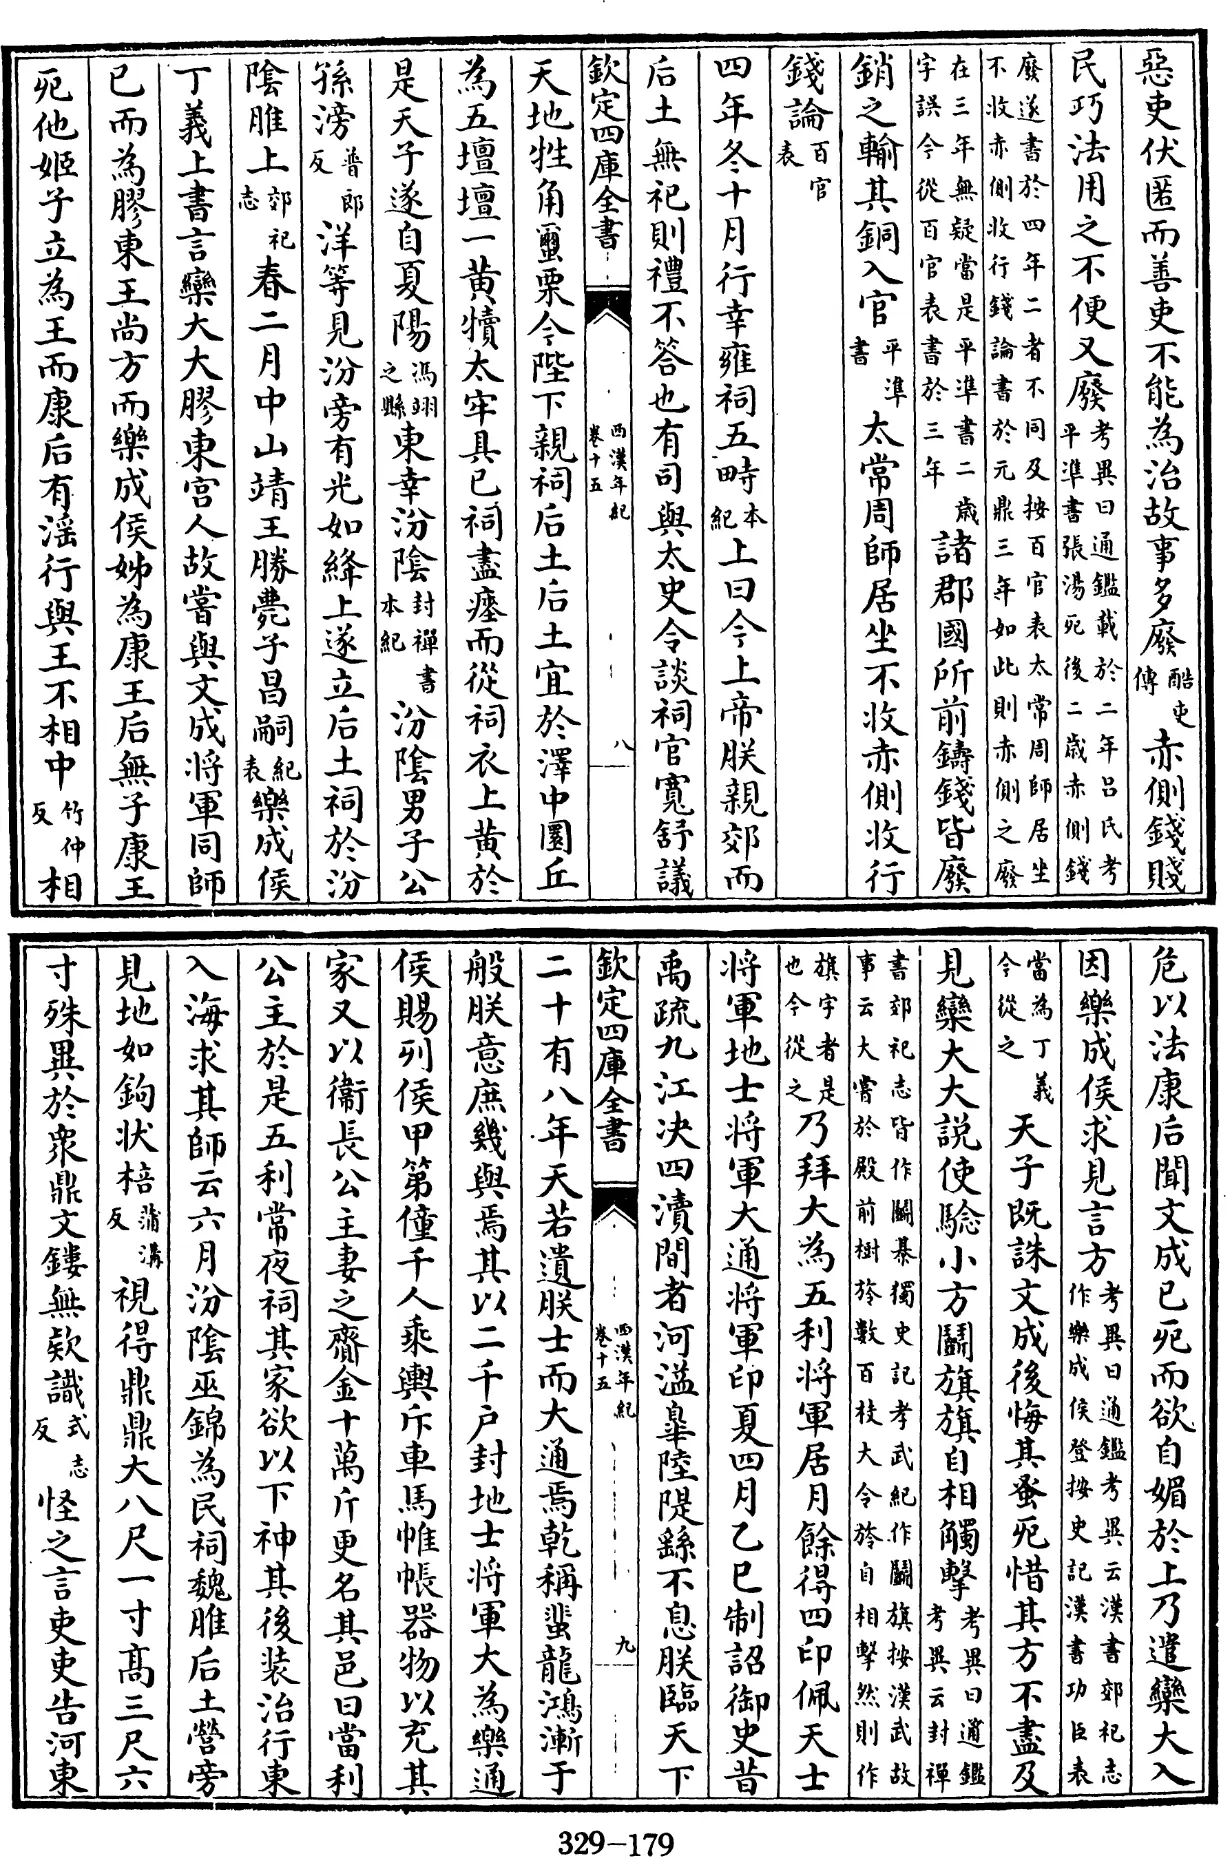 惡吏伏匿而善吏不能為治故事多廢酷吏傳赤側錢賤
民巧法用之不便又廢考異曰通鑑載於二年呂氏考平準書張湯死後二歲赤側錢
廢遂書於四年二者不同及按百官表太常周師居坐不收赤側收行錢論書於元鼎三年如此則赤側之廢
在三年無疑當是平準書二歲字誤今從百官表書於三年諸郡國所前鑄錢皆廢
銷之輸其銅入官平準書太常周師居坐不收赤側收行
錢論百官表
四年冬十月行幸雍祠五畤本紀上曰今上帝朕親郊而
后土無祀則禮不答也有司與太史令談祠官寬舒議
欽定四庫全書 西漢年紀卷十五 八
天地牲角蠒栗今陛下親祠后土后土宜於澤中圜丘
為五壇壇一黄犢太牢具已祠盡瘞而從祠衣上黄於
是天子遂自夏陽馮翊之縣東幸汾陰封禪書本紀汾陰男子公
孫滂普郎反洋等見汾旁有光如絳上遂立后土祠於汾
陰脽上郊祀志春二月中山靖王勝薨子昌嗣紀表樂成侯
丁義上書言欒大大膠東宮人故嘗與文成將軍同師
已而為膠東王尚方而樂成侯姊為康王后無子康王
死他姬子立為王而康后有淫行與王不相中竹仲反相
危以法康后聞文成已死而欲自媚於上乃遣欒大入
因樂成侯求見言方考異曰通鑑考異云漢書郊祀志作樂成侯登按史記漢書功臣表
當為丁義今從之天子既誅文成後悔其蚤死惜其方不盡及
見欒大大說使驗小方鬭旗旗自相觸擊考異曰通鑑考異云封禪
書郊祀志皆作鬭棊獨史記孝武紀作鬭旗按漢武故事云大嘗於殿前樹旍數百枝大令旍自相擊然則作
旗字者是也今從之乃拜大為五利將軍居月餘得四印佩天士
將軍地士將軍大通將軍印夏四月乙巳制詔御史昔
禹疏九江決四瀆間者河溢臯陸隄繇不息朕臨天下
欽定四庫全書 西漢年紀卷十五 九
二十有八年天若遺朕士而大通焉乾稱蜚龍鴻漸于
般朕意庶幾與焉其以二千户封地士將軍大為樂通
侯賜列侯甲第僮千人乘輿斥車馬帷帳器物以充其
家又以衞長公主妻之齎金十萬斤更名其邑曰當利
公主於是五利常夜祠其家欲以下神其後装治行東
入海求其師云六月汾陰巫錦為民祠魏脽后土營旁
見地如鉤状棓蒲溝反視得鼎鼎大八尺一寸髙三尺六
寸殊異於衆鼎文鏤無欵識式志反怪之言吏吏告河東
329–179